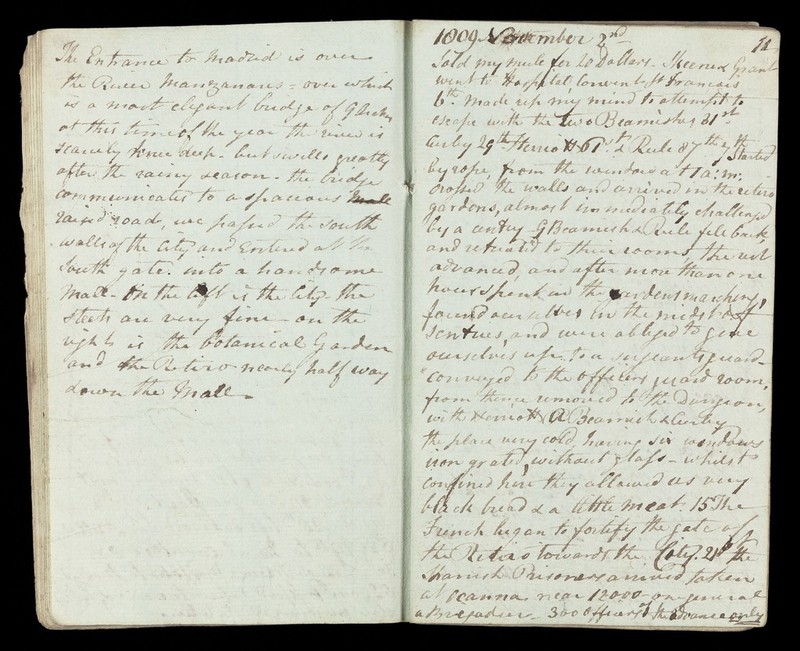 The Entrance to Madrid is over
the River Manzanares - over which
is a most elegant bridge of 9 Arches
at this time of the year the river is
scarcely knee deep - but swells greatly
after the rainy season. the bridge
communicates to a spacious Mall
raised roads, we passed the South
walls of the City and Entered at the
South gate. into a handsome
Mall. On the left is the City. the
Steets are very fine - on the
right is the Botanical Garden
and the Retiro nearly half way
down the Mall
1809 November 2nd
Sold my mule for 20 Dollars - Skeene & Grant
went to Hospital Convent St Francois
6th made up my mind to attempt to
escape with the two Beamishes 31st
Curby 29th Herriott 61st & Reile 87th 7th Started
by rope, from the window at 1 a: m:
crossed the walls and arrived in the retiro
gardens, almost immediately challenged
by a centry - G Beamish & Reile fell back,
and returned to their rooms, the rest
advanced, and after more than one
hour spent in the gardens marching,
found ourselves in the midst of
Sentries, and were obliged to give
ourselves up, to a sergeants guard -
conveyed to the officers guard room,
from thence removed to the Dungeon,
with Herriott A Beamish & Curby
the place very cold, having six windows
iron grated, without glass - whilst
confined here they allowed us very
black bread & a little meat. 15 The
French began to fortify the gate of
the Retiro towards the City. 21st the
Spanish Prisoners arrived taken
at Ocanna near 12000 - one general
a Brigadier - 300 Officers of the advance only